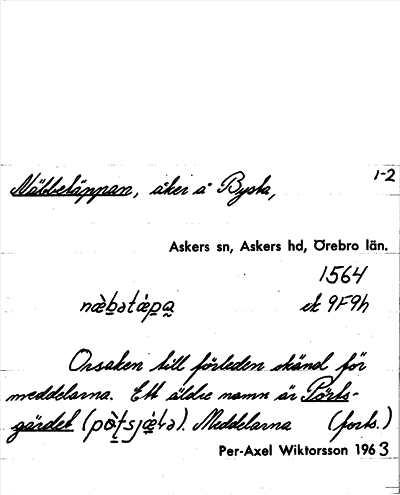 1-2
Näbbetäppan, åker å Bysta,
Askers sn, Askers hd, Örebro län.
1564
næ̀b̤ətáp̤a̰ ek 9F9h
Orsaken till förleden okänd för
meddelarna. Ett äldre namn är Pörts-
gärdet Meddelarna (forts.)
Per-Axel Wiktorsson 1963